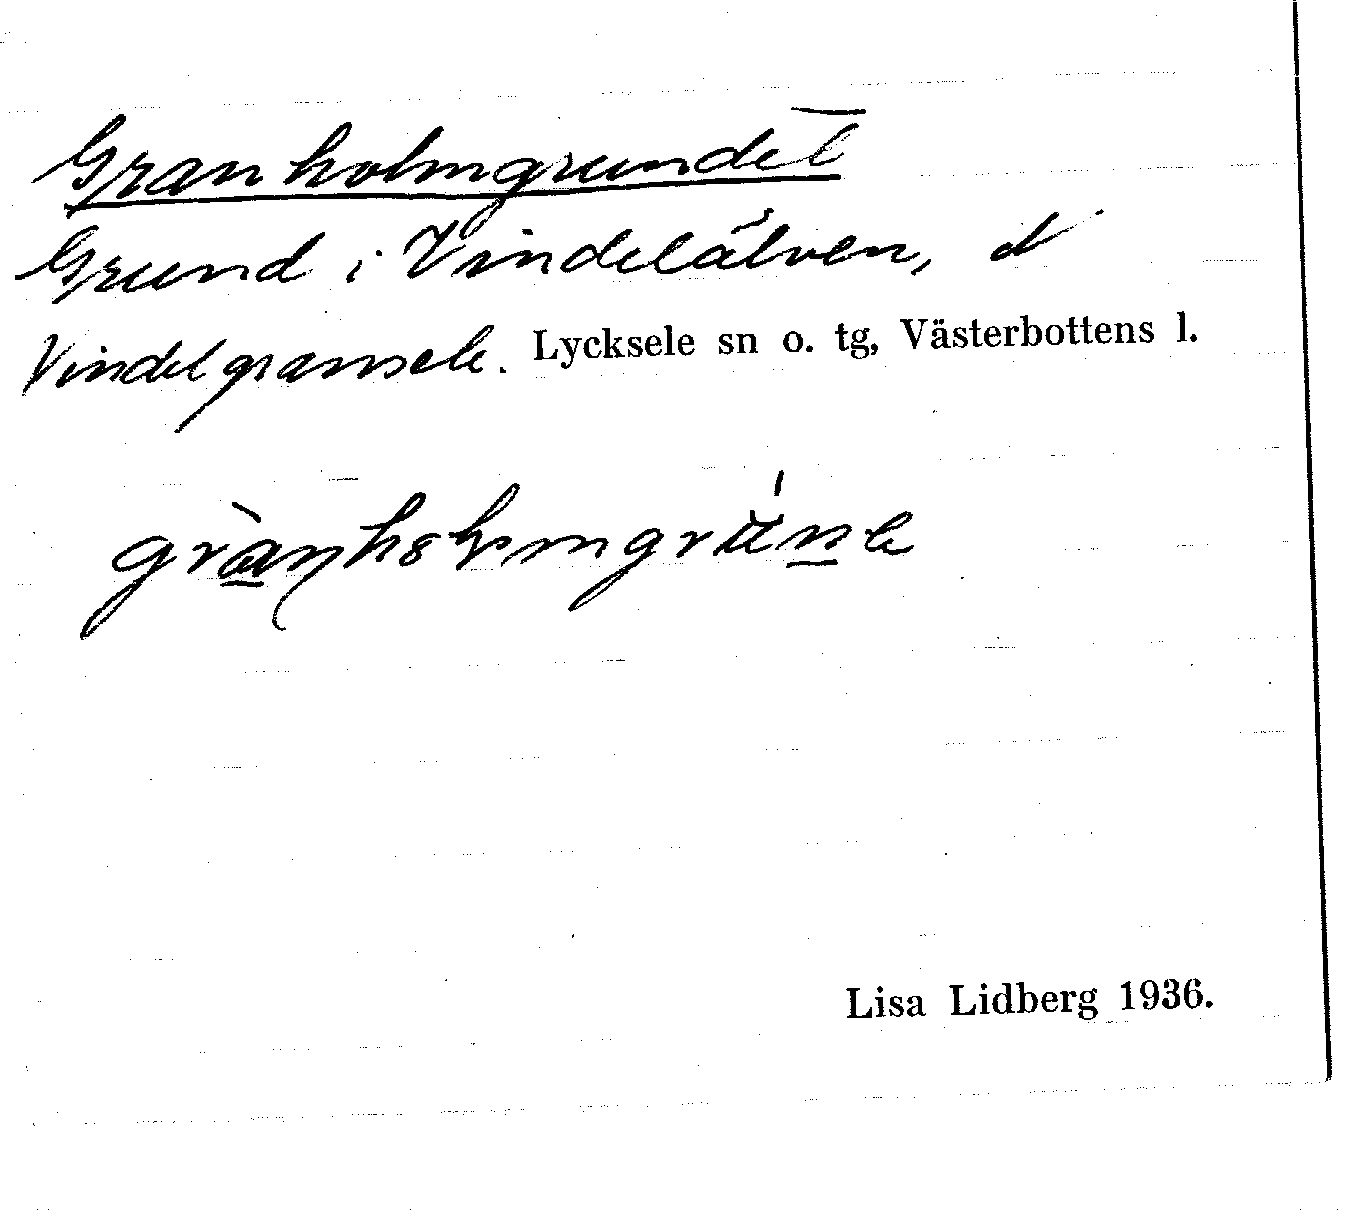 Granholmgrundet
Grund i Vindelälven,
Vindelgransele. Lycksele sn o. tg, Västerbottens l.
Lisa Lidberg 1936.